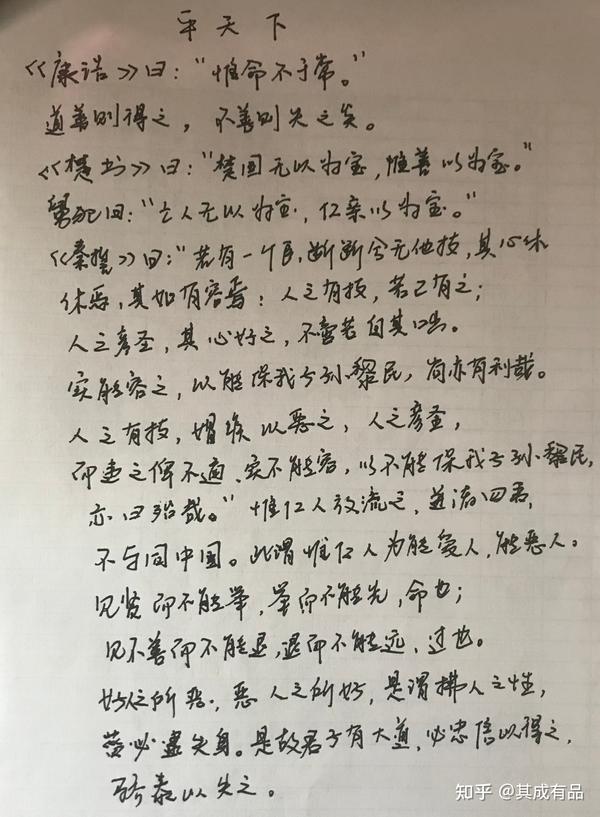 平天下
《康诰》曰："惟命不于常。"
道善则得之，不善则失之矣。
《楚书》曰："楚国无以为宝，惟善以为宝。"
舅犯曰："亡人无以为宝，仁亲以为宝。"
《秦誓》曰："若有一个臣，断断兮无他技，其心休
休焉，其如有容焉；人之有技，若己有之；
人之彦圣，其心好之，不啻若自其口出。
实能容之，以能保我子孙黎民，尚亦有利哉。
人之有技，媢嫉以恶之，人之彦圣，
而违之俾不通、实不能容，以不能保我子孙黎民，
亦曰殆哉。"惟仁人放流之，迸诸四夷，
不与同中国。此谓惟仁人为能爱人，能恶人。
见贤而不能举，举而不能先，命也；
见不善而不能退，退而不能远、过也。
好人之所恶，恶人之所好，是谓拂人之性，
菑必逮夫身。是故君子有大道，必忠信以得之，
骄泰以失之。
知乎 @其成有品